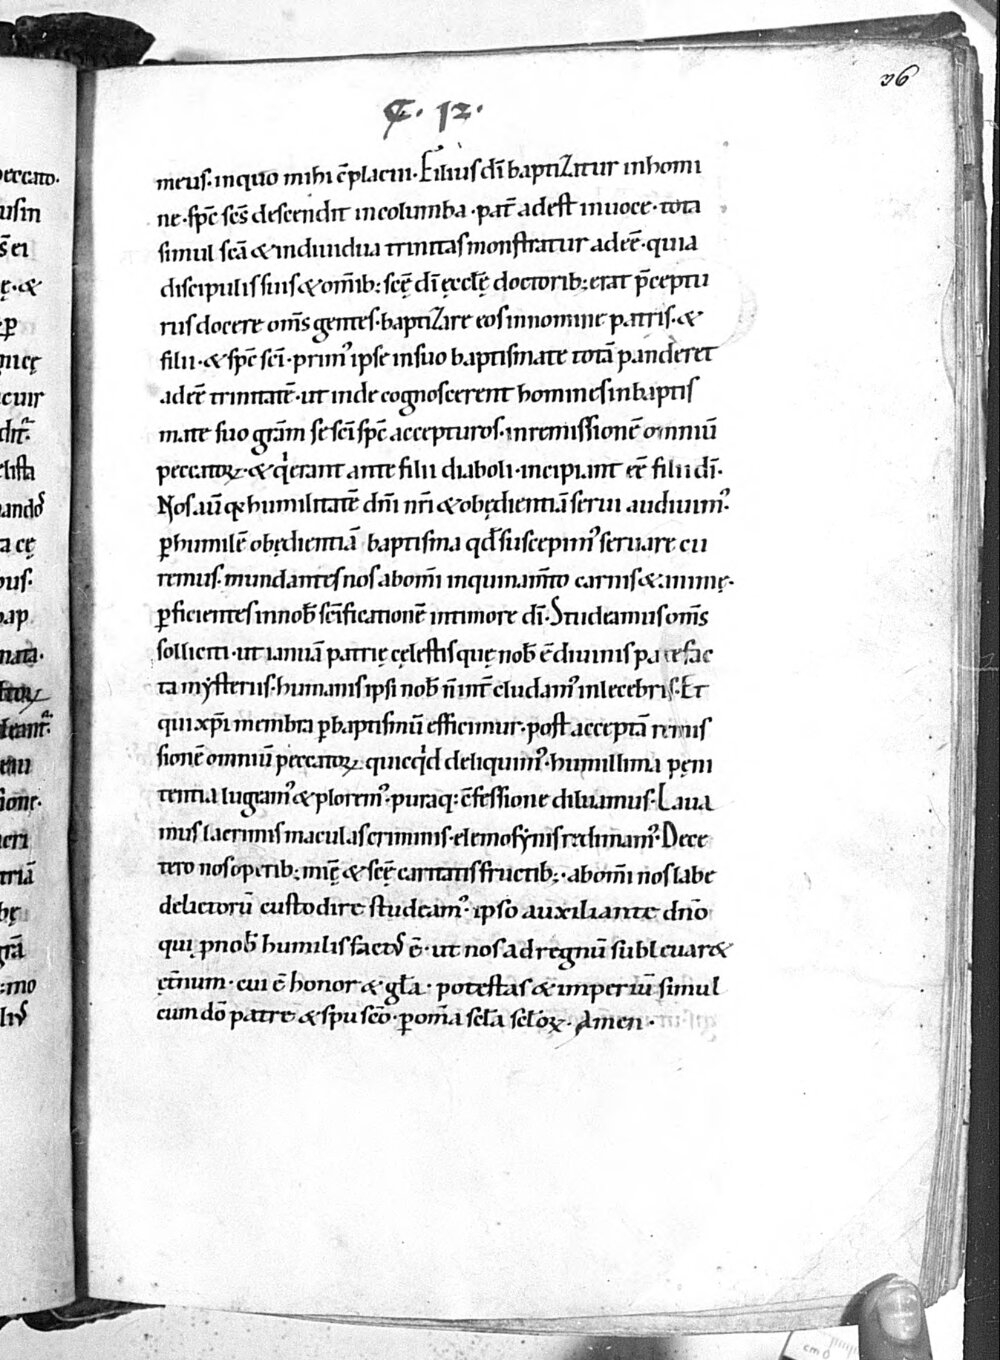 36
C. 12.
meus. in quo mihi c̄placui. Filius dī baptiZitur in homi
ne. sp̄c sc̄s descendit in columba. pat̄ adest in uoce. tota
simul sc̄a & indiuidua trinitas monstratur adeē. quia
discipulis suis & om̄ib; sc̄ę dī ęccłę doctorib; erat p̄ceptu
rus docere om̄s gentes. baptiZare eos in nomine patris. &
filii. & sp̄c sc̄i. prim᾽ ipse in suo baptismate totā panderet
adeē trinitatē. ut inde cognoscerent homines in baptis
mate suo gr̄am se sc̄i sp̄c accepturos. in remissionē omniū
peccatoꝝ. & qͥ erant ante filii diaboli. incipiant eē filii dī.
Nos aū q̨ humilitatē dn̄i nr̄i & obędientiā serui audiuim᾽.
ꝑ humilē obędientiā baptisma qđ suscepim᾽ seruare cu
remus. mundantes nos abom̄i inquinam̄to carnis & animę.
ꝑficientes in nob̄ sc̄ificationē in timore dī. Studeamus om̄s
solliciti. ut ianuā patrię cęlestis quę nob̄ ē diuinis patefac
ta mẏsteriis. humanis ipsi nob̄ n̄ int̄ cludam᾽ inlecebris. Et
qui xp̄i membra ꝑ baptismū efficimur. post acceptā remis
sionē omniū peccatoꝝ quicqͥd deliquim᾽. humillima pęni
tentia lugeam᾽ & plorem᾽. puraq; c̄fessione diluamus. Laua
mus lacrimis maculas criminis. elemosẏnis redimam᾽. De ce
tero nos operib; mic̄ę & sc̄ę caritatis fructib;. abom̄i nos labe
delictorū custodire studeam᾽. ipso auxiliante dn̄o
qui ꝓ nob̄ humilis fact᾽ ē. ut nos ad regnū subleuar&
ęt̄num. cui ē honor & gl̄a. potestas & imperiū simul
cum dō patre & spu sc̄o. ꝑ om̄a scl̄a scl̄oꝝ. Amen.